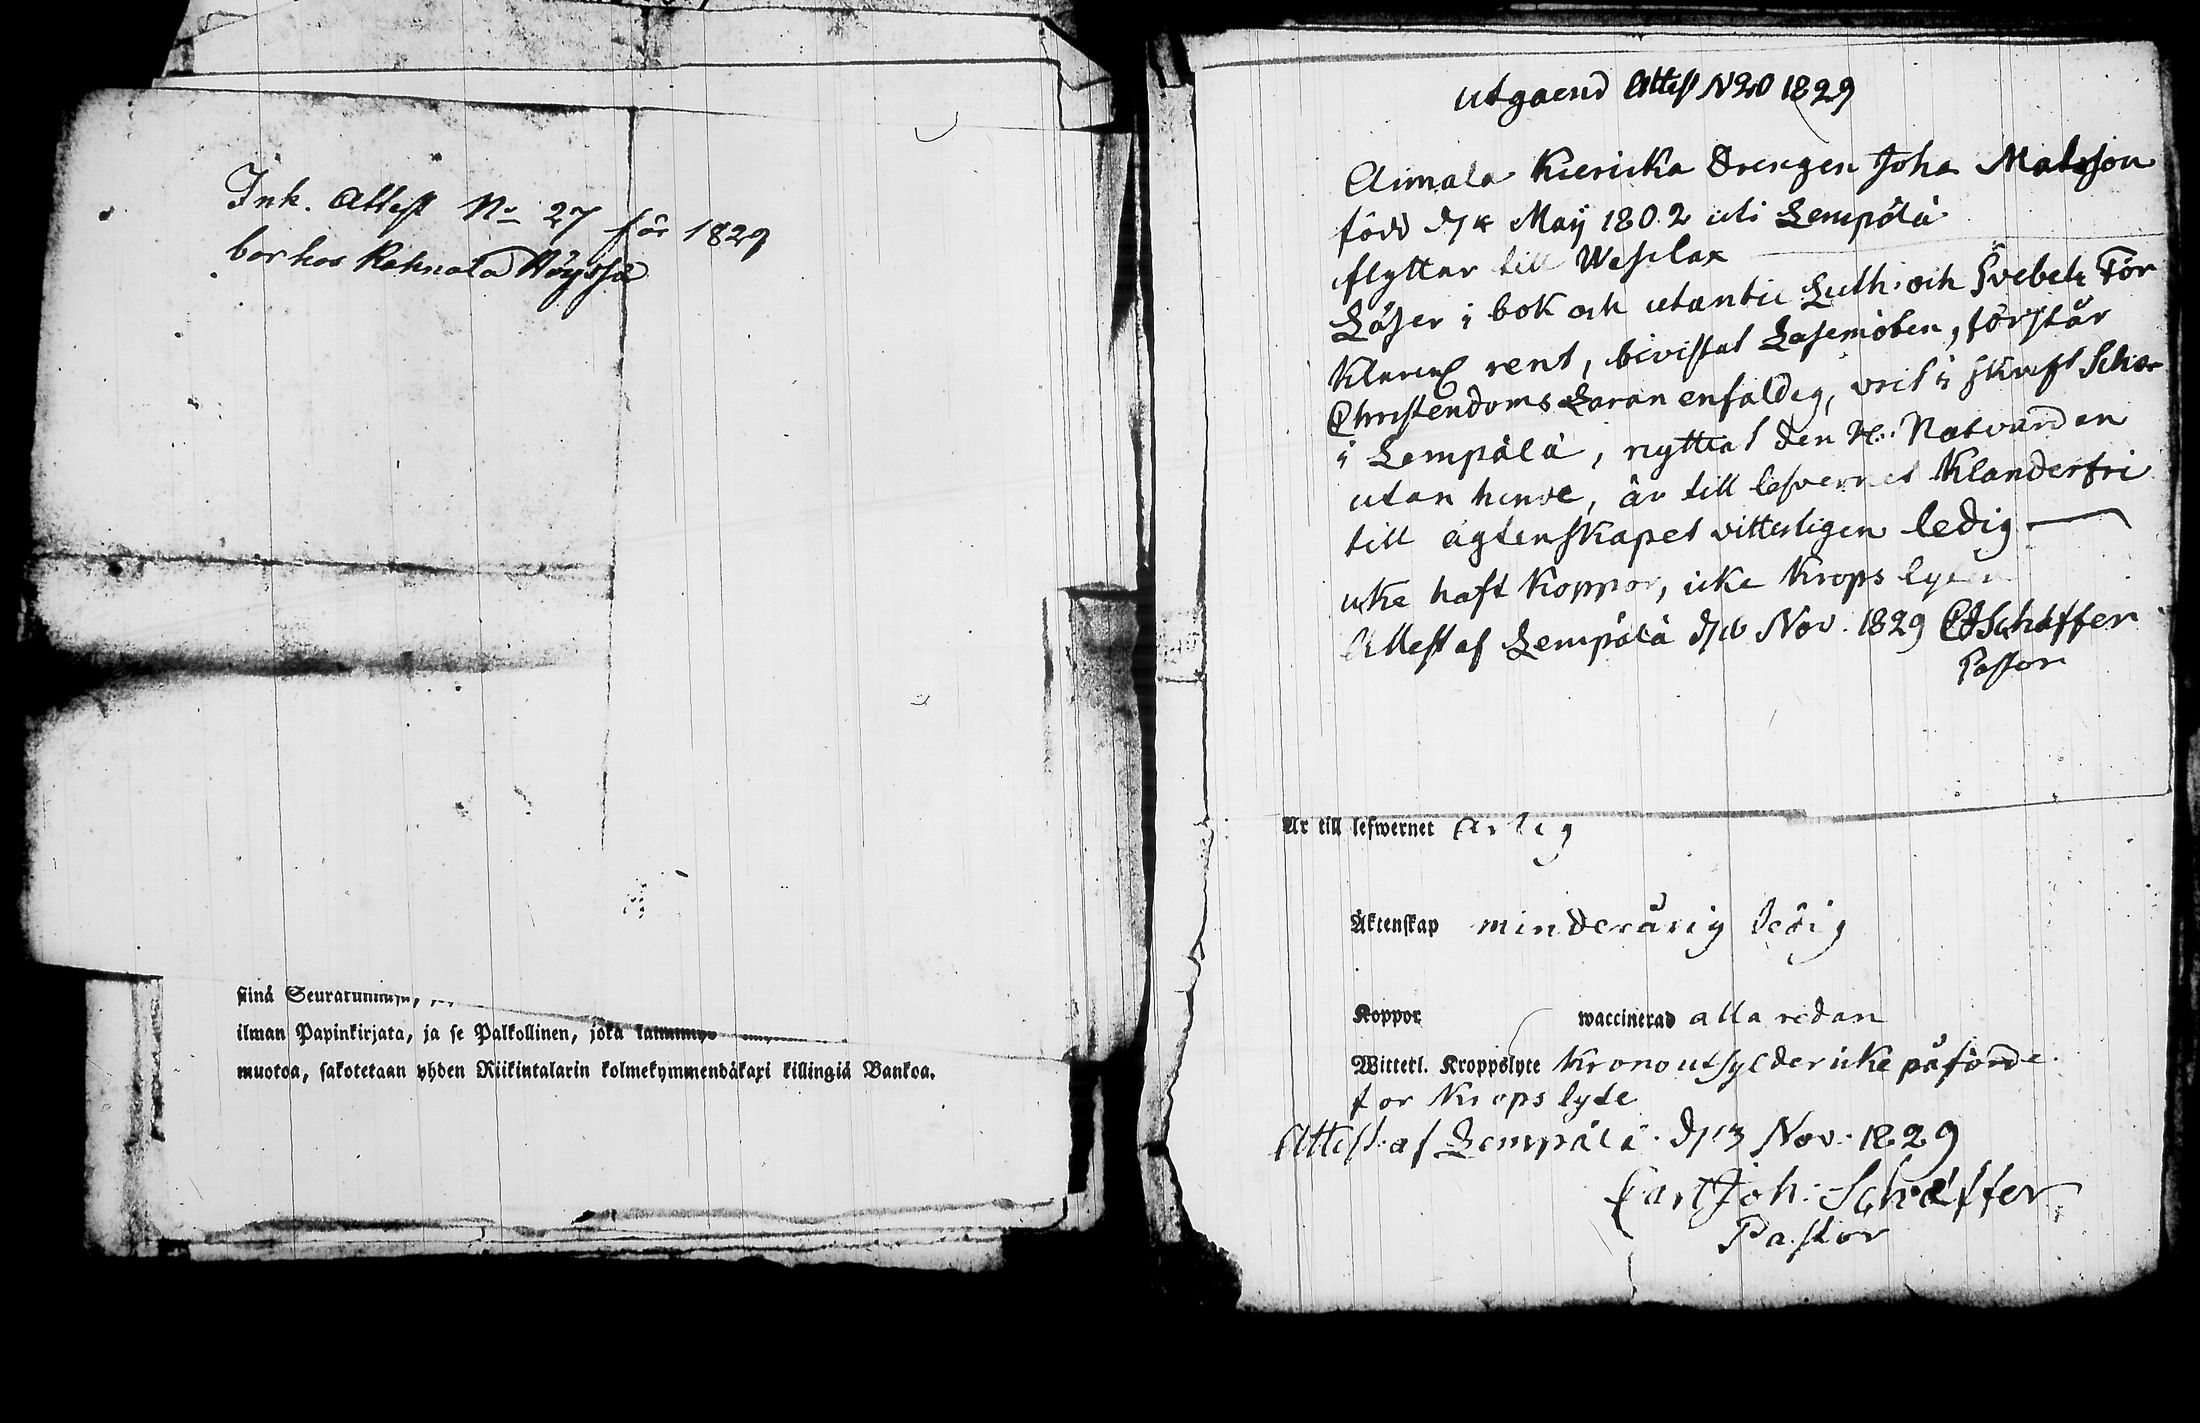 Ink. Attest No 27 för 1829
bor hos Rahnala Höyssä
siinä Seurakunnassa,
ilman Papinkirjata, ja se Palkollinen, joka
muotoa, sakotetaan yhden Riikintalarin kolmekymmendäkaxi killingiä Bankoa.
utgaend Attest N20 1829
Aimala Kiericka Drengen Joha Matsson
född d/4 Maÿ 1802 uti Lempälä
flyttar till Wesilax
Läser i bok och utantil Luth. och Svebeli För
Klaring rent, bivistat Läsemöten, förstår
Christendoms Läran enfaldig, varit i skrift Schor
i Lempälä, nyttiat den H: Natvarden
utan hinde, är till lefvernet Klanderfri
till ägtenskapet vitterligen ledig
icke haft Koppor, icke Krops lyten
Attest af Lempälä d/16 Nov. 1829 CJSchäffer
Pastor
Är till lefwernet ärlig
Äktenskap minderårig ledig
Koppor waccinerad alla redan
Witterl. Kroppslyte Kronoutsylder icke påförde
for Krops lyte
Attest af Lempälä d/13 Nov. 1829
Carl Joh: Schäffer
Pastor